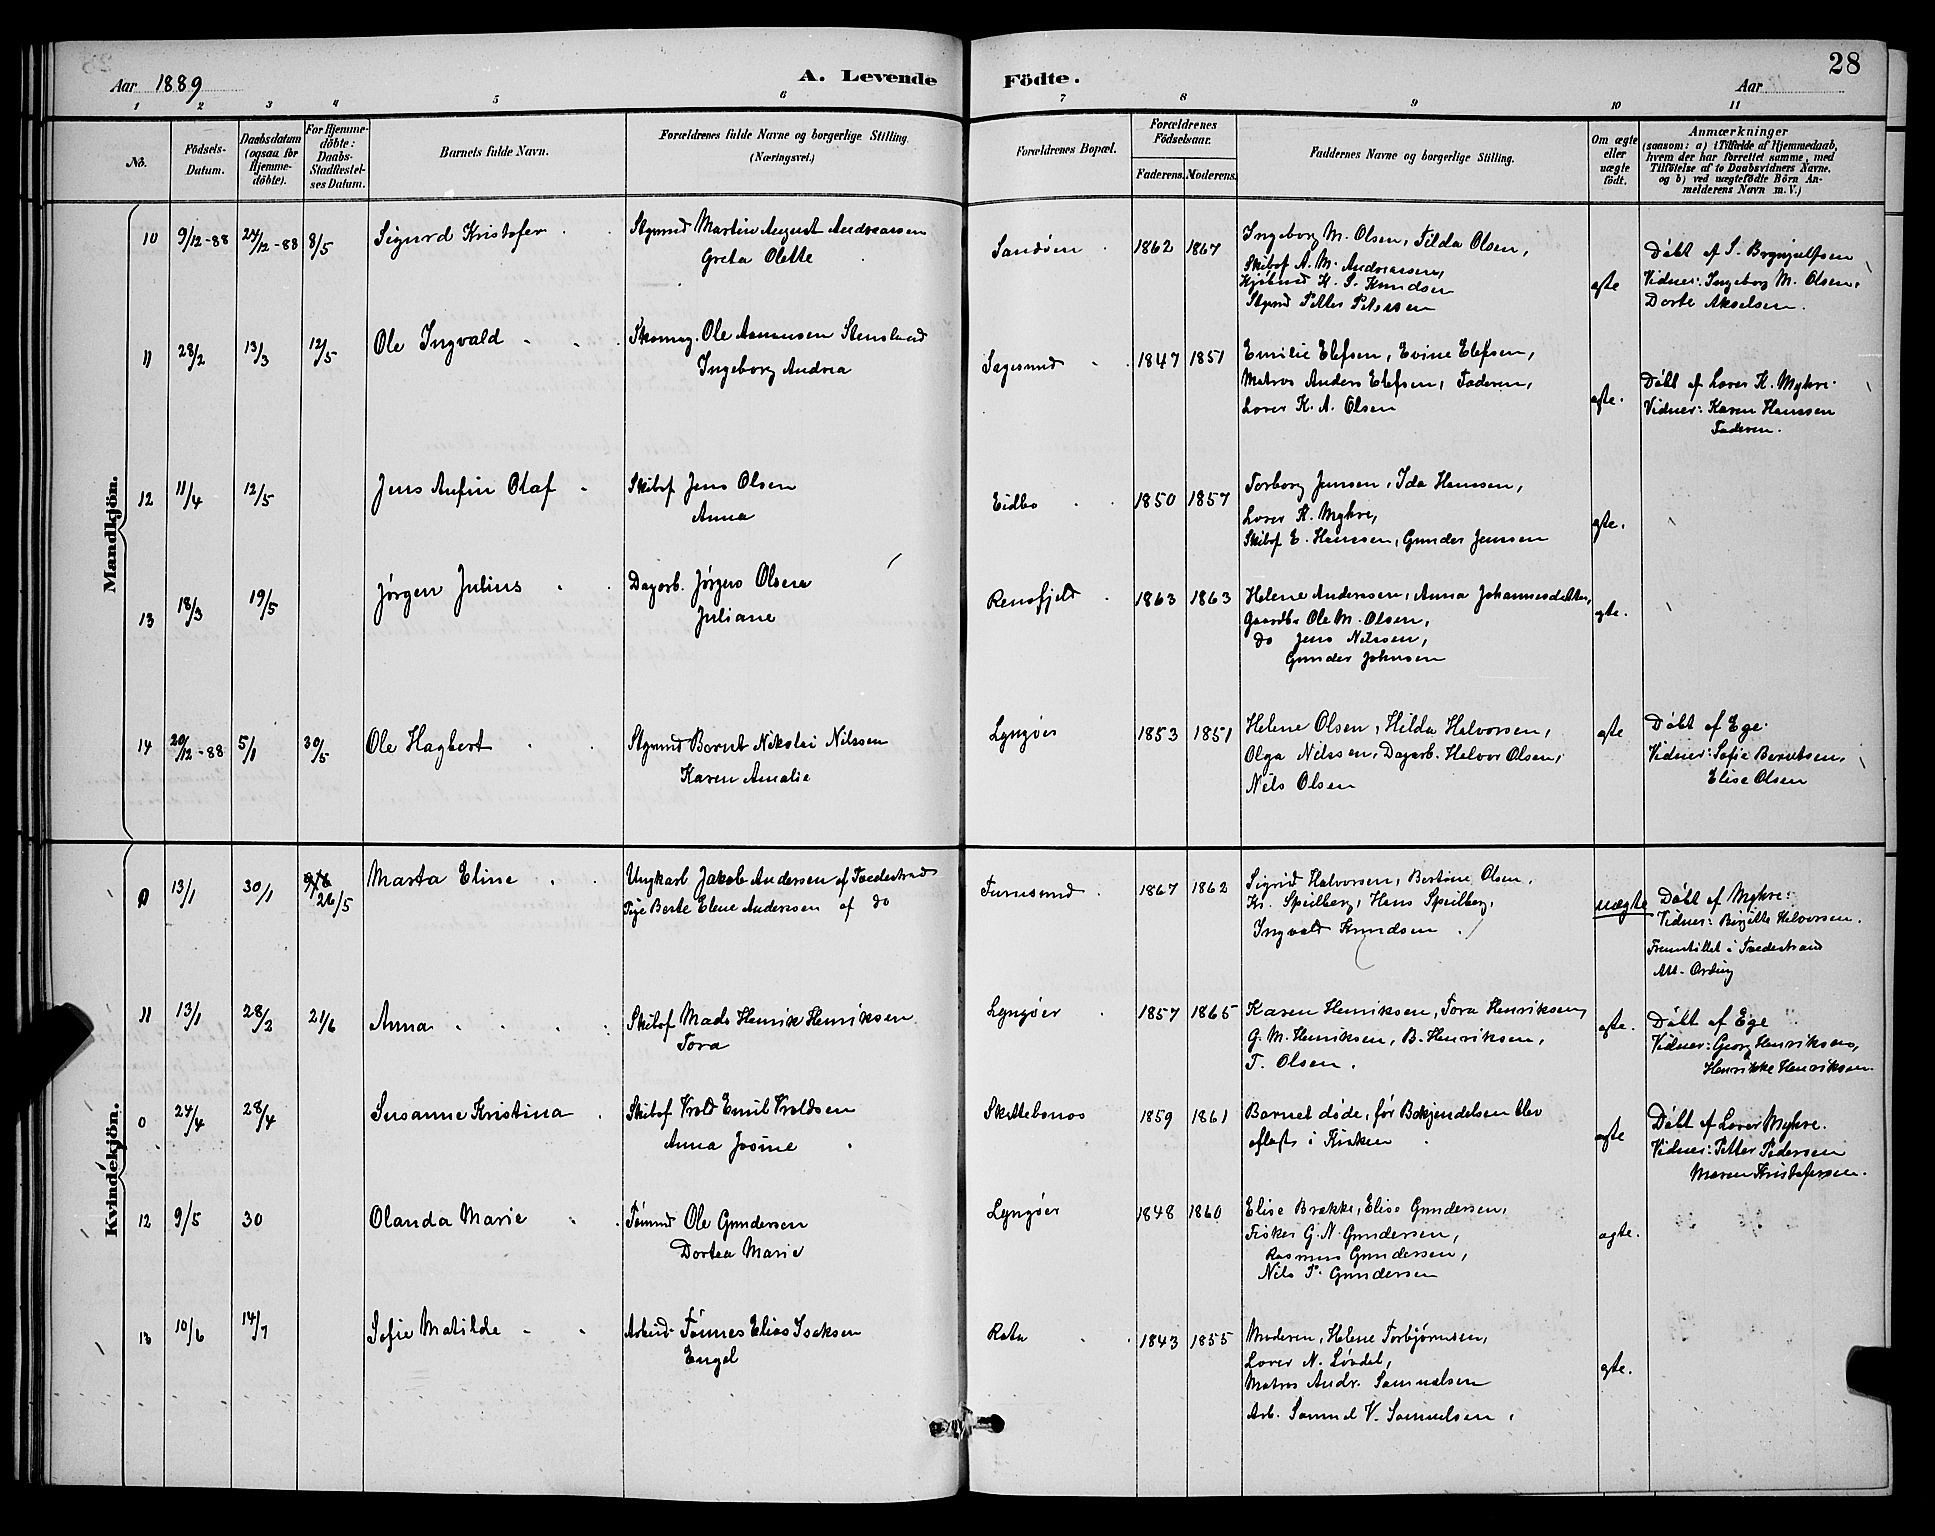 28
Aar 1889 A. Levende Födte. Aar
1 2 3 4 5 6 7 8 9 10 11
No.
Födsels-Datum.
Daabsdatum (ogsaa for Hjemme-döbte).
For Hjemme-döbte: Daabs-Stadfæstel-ses Datum.
Barnets fulde Navn.
Forældrenes fulde Navne og borgerlige Stilling. (Næringsvei.)
Forældrenes Bopæl.
Forældrenes Födselsaar.
Faderens. Moderens.
Faddernes Navne og borgerlige Stilling.
Om ægte eller uægte födt.
Anmærkninger
(saasom: a) i Tilfælde af Hjemmedaab,
hvem der har forrettet samme, med
Tilföielse af to Daabsvidners Navne,
og b) ved uægtefödte Börn An-
melderens Navn m. V.)
Mandkjön.
10 9/12-88 24/12-88 8/5 Sigurd Kristofer Stymd Martin August Andreassen
Greta Olette
Sandøen 1862 1867 Ingeborg M. Olsen, Tilda Olsen,
Skibsf A. M. Andreassen,
Kjøbmd K. S. Knudsen
Stymd Petter Petersen
ægte
Døbt af S. Brynjulfsen
Vidner: Ingeborg M. Olsen,
Dorte Akselsen.
11 28/2 13/3 12/5 Ole Ingvald Skomag. Ole Asmunsen Stenslund
Ingeborg Andrea
Sagesund 1847 1851 Emilie Elefsen, Evine Elefsen,
Matros Anders Elefsen, Faderen,
Lærer K. A. Olsen
ægte.
Døbt af Lærer K. Myhre.
Vidner: Karen Hanssen
Faderen.
12 11/4 12/5 Jens Anfin Olaf Skibsf Jens Olsen
Anna
Eidbo 1850 1857 Torborg Jensen, Ida Hanssen,
Lærer K. Myhre,
Skibsf E. Hanssen, Gunder Jenssen
ægte.
13 18/3 19/5 Jørgen Julius Dagarb. Jørgen Olsen
Juliane
Rensfjeld 1863 1863 Helene Anderssen, Anna Johannesdatter,
Gaardbr Ole M. Olsen,
do Jens Nilssen,
Gunder Johnsen
ægte.
14 20/12-88 5/1 30/5 Ole Hagbert Stymnd Bernt Nikolai Nilssen
Karen Amalie
Lyngøer 1853 1851 Helene Olsen, Hilda Halvorsen,
Olga Nilssen, Dagarb. Halvor Olsen,
Nils Olsen
ægte
Døbt af Ege.
Vidner: Sofie Berntsen,
Elise Olsen
Kvindekjön.
13/1 30/1 26/5 Marta Eline Ungkarl Jakob Andersen af Tvedestrand
Pige Berte Elene Anderssen af do
Furusund 1867 1862 Sigrid Halvorsen, Bertine Olsen,
Kr. Speilberg, Hans Speilberg,
Ingvald Knudsen
uægte
Døbt af Myhre.
Vidner: Birgitte Halvorssen.
Fremstillet i Tvedestrand
Att. Ording
11 13/1 28/2 21/6 Anna Skibsf Mads Henrik Henriksen
Tora
Lyngøer 1857 1865 Karen Henriksen, Tora Henriksen,
G. M. Henriksen, B. Henriksen,
T. Olsen.
ægte.
Døbt af Ege
Vidner: Georg Henriksen,
Henrikke Henriksen
0 24/4 28/4 Susanne Kristina Skibsf Vrold Emil Vroldsen
Anna Josine
Skottebonos 1859 1861 Barnet døde, før Bekjendelsen blev
aflagt i Kirken
ægte
Døbt af Lærer Myhre.
Vidner: Petter Pedersen
Maren Kristofersen.
12 9/5 30 Olanda Marie Tømmd Ole Gundersen
Dortea Marie
Lyngøer 1848 1860 Elise Brække, Elise Gundersen,
Fisker G. N. Gundersen,
Rasmus Gundersen,
Nils P. Gundersen
ægte.
13 10/6 14/7 Sofie Matilde Arbmd. Tønnes Elias Isaksen
Engel
Rota 1843 1855 Moderen, Helene Torbjørnsen,
Lærer N. Løvdal,
Matros Andr. Samuelsen
Arb. Samuel V. Samuelsen,
ægte.